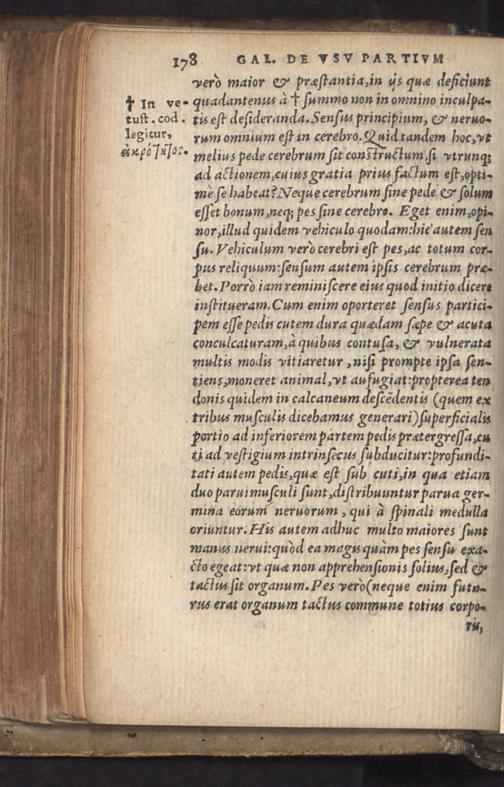 178 GAL. DE VSV PARTIVM
verò maior & præstantia, in ijs quæ deficiunt
quadantenus à † summo non in omnino inculpa-
tis est desideranda. Sensus principium, & neruo-
rum omnium est in cerebro. Quid tandem hoc, vt
melius pede cerebrum sit constructum, si vtrunq;
ad actionem, cuius gratia prius factum est, opti-
mè se habeat? Neque cerebrum sine pede & solum
esset bonum, neq; pes sine cerebro. Eget enim, opi-
nor, illud quidem vehiculo quodam: hic autem sen
su. Vehiculum verò cerebri est pes, ac totum cor-
pus reliquum: sensum autem ipsis cerebrum præ-
bet. Porrò iam reminiscere eius quod initio dicere
institueram. Cum enim oporteret sensus partici-
pem esse pedis cutem dura quædam sæpe & acuta
conculcaturam, à quibus contusa, & vulnerata
multis modis vitiaretur, nisi prompte ipsa sen-
tiens, moneret animal, vt aufugiat: propterea ten
donis quidem in calcaneum descēdentis (quem ex
tribus musculis dicebamus generari) superficialis
portio ad inferiorem partem pedis prætergressa, cu
ti ad vestigium intrinsecus subducitur: profundi-
tati autem pedis, quæ est sub cuti, in qua etiam
duo parui musculi sunt, distribuuntur parua ger-
mina eorum neruorum, qui à spinali medulla
oriuntur. His autem adhuc multo maiores sunt
manus nerui: quòd ea magis quàm pes sensu exa-
cto egeat: vt quæ non apprehensionis solius, sed &
tactus sit organum. Pes verò (neque enim futu-
rus erat organum tactus commune totius corpo-
ris,
† In ve-
tust. cod.
legitur,